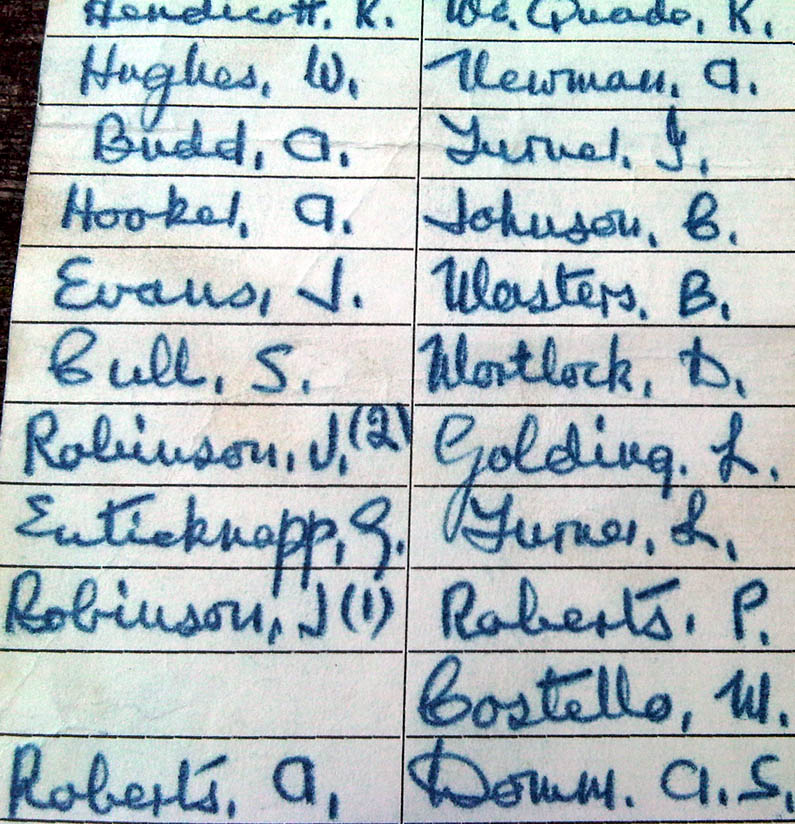 Hendicott. K. Mc. Quade, K.
Hughes, W. Newman, A.
Budd, A. Turner. J.
Hooker, A. Johnson, C.
Evans, J. Masters, B.
Cull, S. Mortlock, D.
Robinson, J. (2) Golding. L.
Enticknapp, G. Turner, L.
Robinson, J (1) Roberts. P.
Costello, M.
Roberts. A, Domm. A. S.